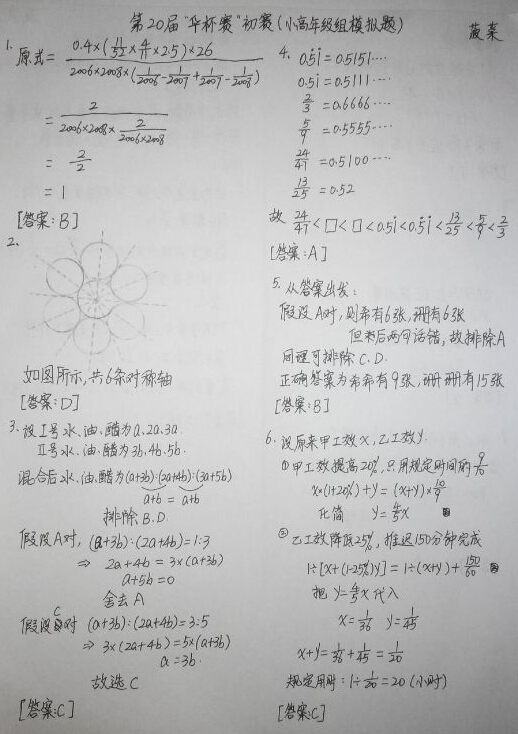 第20届“华杯赛”初赛(小高年级组模拟题)
菠菜
1. 原式= 0.4×(11/35×4/11×2.5)×26 / 2006×2008×(1/2006-1/2007+1/2007-1/2008)
= 2 / 2006×2008×2/2006×2008
= 2/2
= 1
[答案:B]
2.
如图所示,共6条对称轴
[答案:D]
3. 设Ⅰ号水、油、醋为a.2a.3a.
Ⅱ号水、油、醋为3b.4b.5b.
混合后水、油、醋为(a+3b):(2a+4b):(3a+5b)
a+b = a+b
排除B.D.
假设A对, (a+3b):(2a+4b)=1:3
⇒ 2a+4b=3×(a+3b)
a+5b=0
舍去A
假设C对 (a+3b):(2a+4b)=3:5
⇒ 3×(2a+4b)=5×(a+3b)
a=3b.
故选C
[答案:C]
4. 0.5̇1̇=0.5151····
0.51̇=0.5111····
2/3=0.6666····
5/9=0.5555····
24/47=0.5100····
13/25=0.52
故 24/47<□<□<0.51̇<0.5̇1̇<13/25<5/9<2/3
[答案:A]
5. 从答案出发:
假设A对,则希有6张,珊有6张
但未后两句话错,故排除A
同理可排除C.D.
正确答案为希希有9张,珊珊有15张
[答案:B]
6. 设原来甲工效x,乙工效y.
①甲工效提高20%,只用规定时间的9/10
x×(1+20%)+y=(x+y)×10/9
化简 y=4/5x
②乙工效降低25%,推迟150分钟完成
1÷[x+(1-25%)y]=1÷(x+y)+150/60
把y=4/5x代入
x=1/36 y=1/45
x+y=1/36+1/45=1/20
规定用时:1÷1/20=20(小时)
[答案:C]